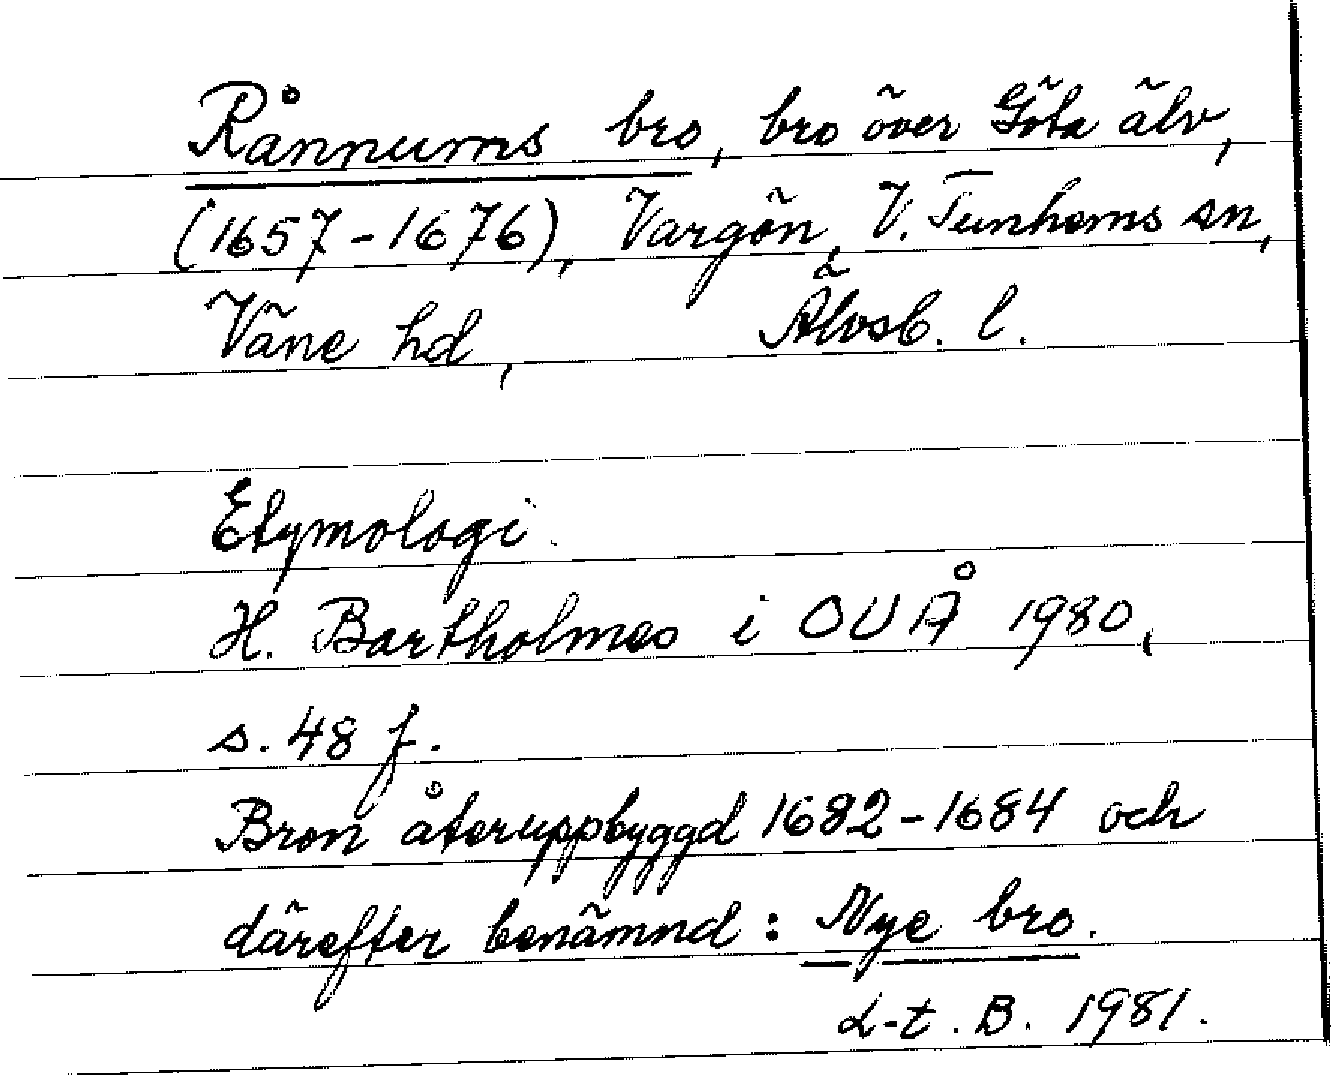 Rånnums bro, bro över Göta älv,
(1657-1676), Vargön, V. Tunhems sn,
Väne hd, Älvsb. l.
Etymologi.
H. Bartholmes i OUÅ 1980,
s. 48 f.
Bron återuppbyggd 1682-1684 och
därefter benämnd: Nye bro.
L-t. B. 1981.